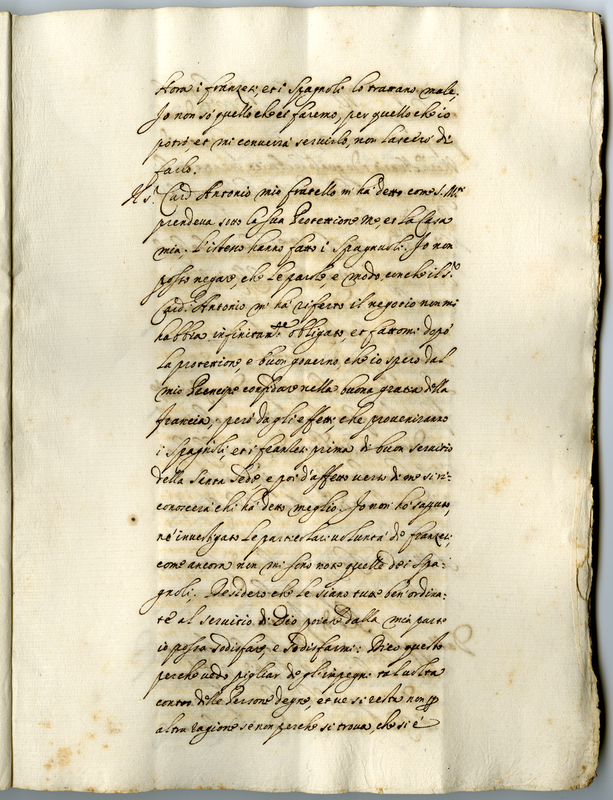 hora i franzesi, et i Spagnoli lo trattano male,
Io non sò quello che ci faremo, per quello che io
potrò, et mi converrà servirlo, non lascierò di
farlo.
Il S.r Card. Antonio mio fratello m'ha detto come S. M.tà
prendeva sotto la sua Protettione me, et la Casa
mia. L'istesso hanno fatto i Spagnuoli. Io non
posso negare, che le parole, e modo, con che il S.r
Card. Antonio m'ha riferto il negotio non mi
habbia infinitam.te obligato, et fattomi dopò
la protettione, e buon governo, che io spero dal
mio Principe confidare nella buona gratia della
Francia, però dagli effetti, che proveniranno
i Spagnoli, et i franzesi prima di buon servitio
della Santa Sede, e poi d'affetto verso di me si ri=
conoscerà chi hà detto meglio. Io non hò saputo,
nè investigato le particolari volontà de franzesi,
come ancora non mi sono note quelle dei Spa=
gnoli. Desidero che le siano tutte ben'ordina=
te al servitio di Dio potere dalla mia parte
io possa sodisfare, e sodisfarmi: Dico questo
perche vedo pigliar de gl'impegni tal volta
contro delle Persone degne, et ve si resta non p
altra ragione se non perche si trova, che si è